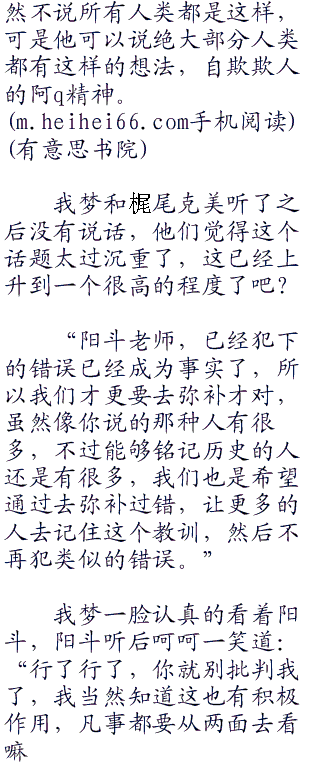 然不说所有人类都是这样，
可是他可以说绝大部分人类
都有这样的想法，自欺欺人
的阿q精神。
(m.heihei66.com手机阅读)
(有意思书院)
我梦和梶尾克美听了之
后没有说话，他们觉得这个
话题太过沉重了，这已经上
升到一个很高的程度了吧？
“阳斗老师，已经犯下
的错误已经成为事实了，所
以我们才更要去弥补才对，
虽然像你说的那种人有很
多，不过能够铭记历史的人
还是有很多，我们也是希望
通过去弥补过错，让更多的
人去记住这个教训，然后不
再犯类似的错误。”
我梦一脸认真的看着阳
斗，阳斗听后呵呵一笑道：
“行了行了，你就别批判我
了，我当然知道这也有积极
作用，凡事都要从两面去看
嘛